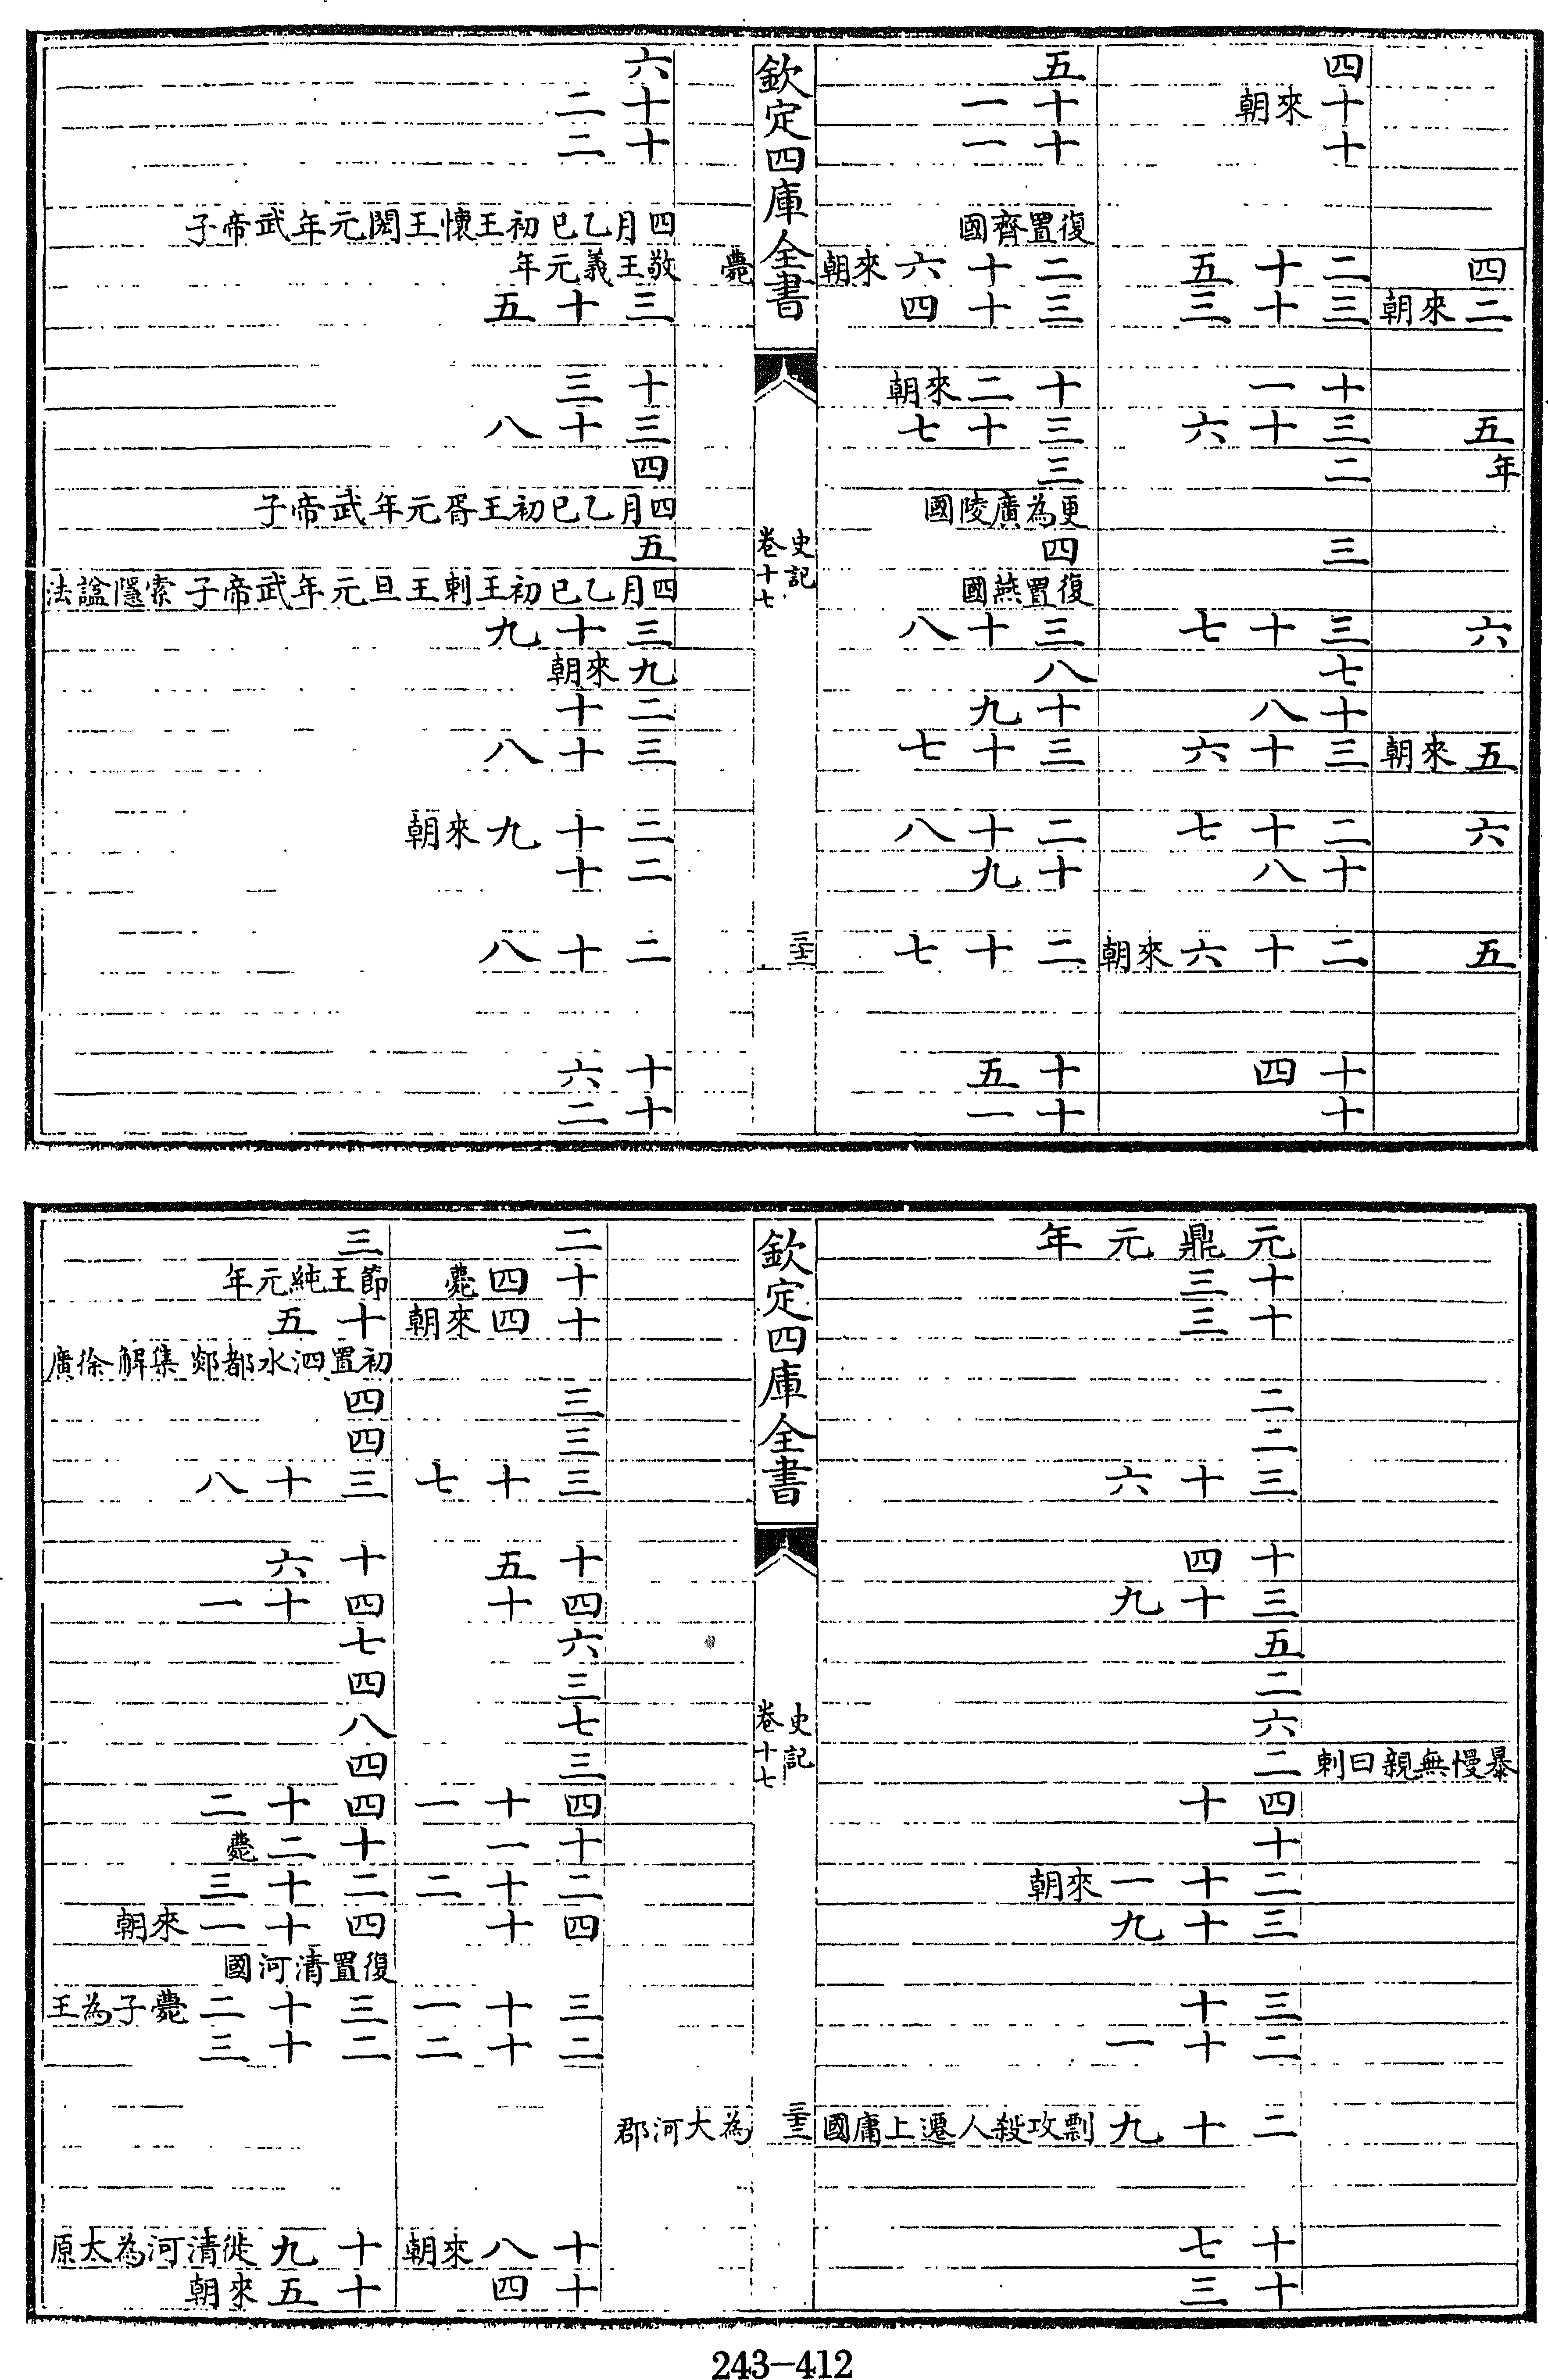 四
二來朝
五
年
六
五來朝
六
五
四
十來朝
十
二十五
三十三
十一
三十六
二
三
三十七
七
十八
三十六
二十七
十八
二十六來朝
十四
十
五
十一
十一
復置齊國
二十六來朝
三十四
十二來朝
三十七
三
更為廣陵國
四
復置燕國
三十八
八
十九
三十七
二十八
十九
二十七
十五
十一
欽定四庫全書
史記
卷十七
薨
六
十二
十二
四月乙巳初王懷王閎元年武帝子
敬王義元年
三十五
十三
三十八
四
四月乙巳初王胥元年武帝子
五
四月乙巳初王剌王旦元年武帝子索隱諡法
三十九
九來朝
二十
三十八
二十九來朝
二十
二十八
十六
十二
暴慢無親曰剌
元鼎元年
十三
十三
二
二
三十六
十四
三十九
五
二
六
二
四十
十
二十一來朝
三十九
三十
二十一
二十九剽攻殺人遷上庸國
十七
十三
欽定四庫全書
史記
卷十七
為大河郡
二
十四薨
十四來朝
三
三
三十七
十五
四十
六
三
七
三
四十一
十一
二十二
四十
三十一
二十二
十八來朝
十四
三
節王純元年
十五
初置泗水都郯集解徐廣
四
四
三十八
十六
四十一
七
四
八
四
四十二
十二薨
二十三
四十一來朝
復置清河國
三十二薨子為王
二十三
十九徙清河為太原
十五來朝
243-412